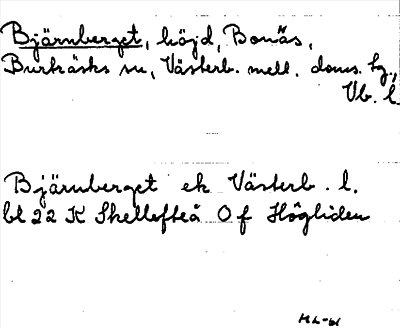 Bjärnberget, höjd, Bonäs,
Burträsks sn, Västerb. mell. doms. tg,
Vb. l.
Bjärnberget ek Västerb. l.
bl 22 K Skellefteå O f Högliden